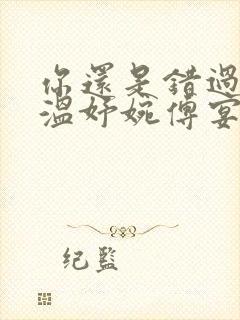 你還是錯過
溫妤婉傅宴
纪監